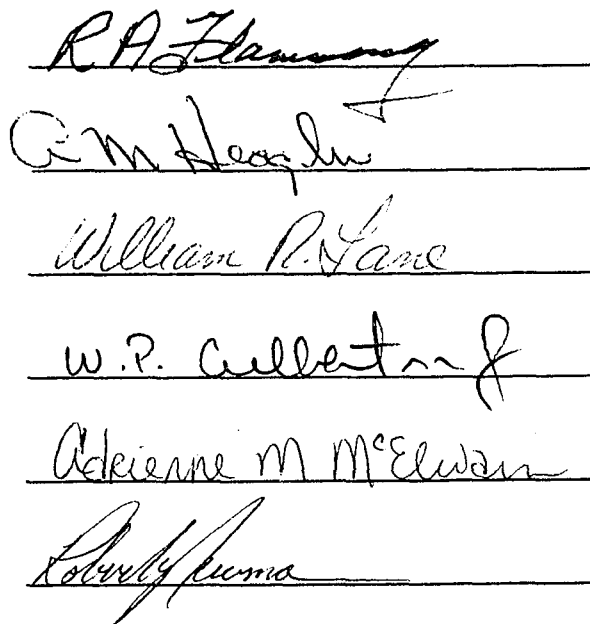 R A Flammang
A M Heaglin
William R. Lane
W. P. Culbertson Jr
Adrienne M McElwain
Robert